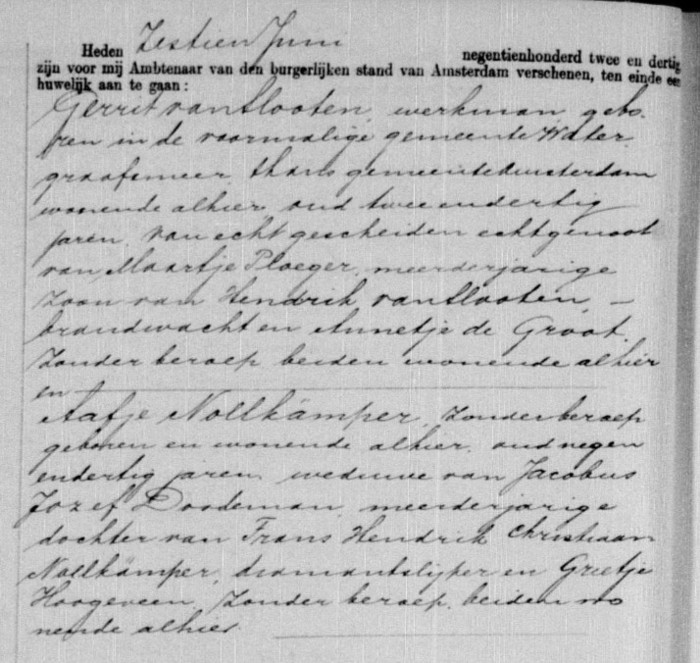 Heden Zestien Juni negentienhonderd twee en dertig
zijn voor mij Ambtenaar van den burgerlijken stand van Amsterdam verschenen, ten einde een
huwelijk aan te gaan:
Gerrit van Slooten, werkman, gebo
ren in de voormalige gemeente Water
graafsmeer, thans gemeente Amsterdam
wonende alhier, oud twee en dertig
jaren, van echt gescheiden echtgenoot
van Maartje Ploeger, meerderjarige
zoon van Hendrik van Slooten, –
brandwacht en Annetje de Groot,
zonder beroep, beiden wonende alhier
en
Aafje Nollkämper, zonder beroep
geboren en wonende alhier, oud negen
en dertig jaren, weduwe van Jacobus
Jozef Doodeman, meerderjarige
dochter van Frans Hendrik Christiaan
Nollkämper, diamantslijper en Grietje
Hoogeveen, zonder beroep, beiden wo
nende alhier.